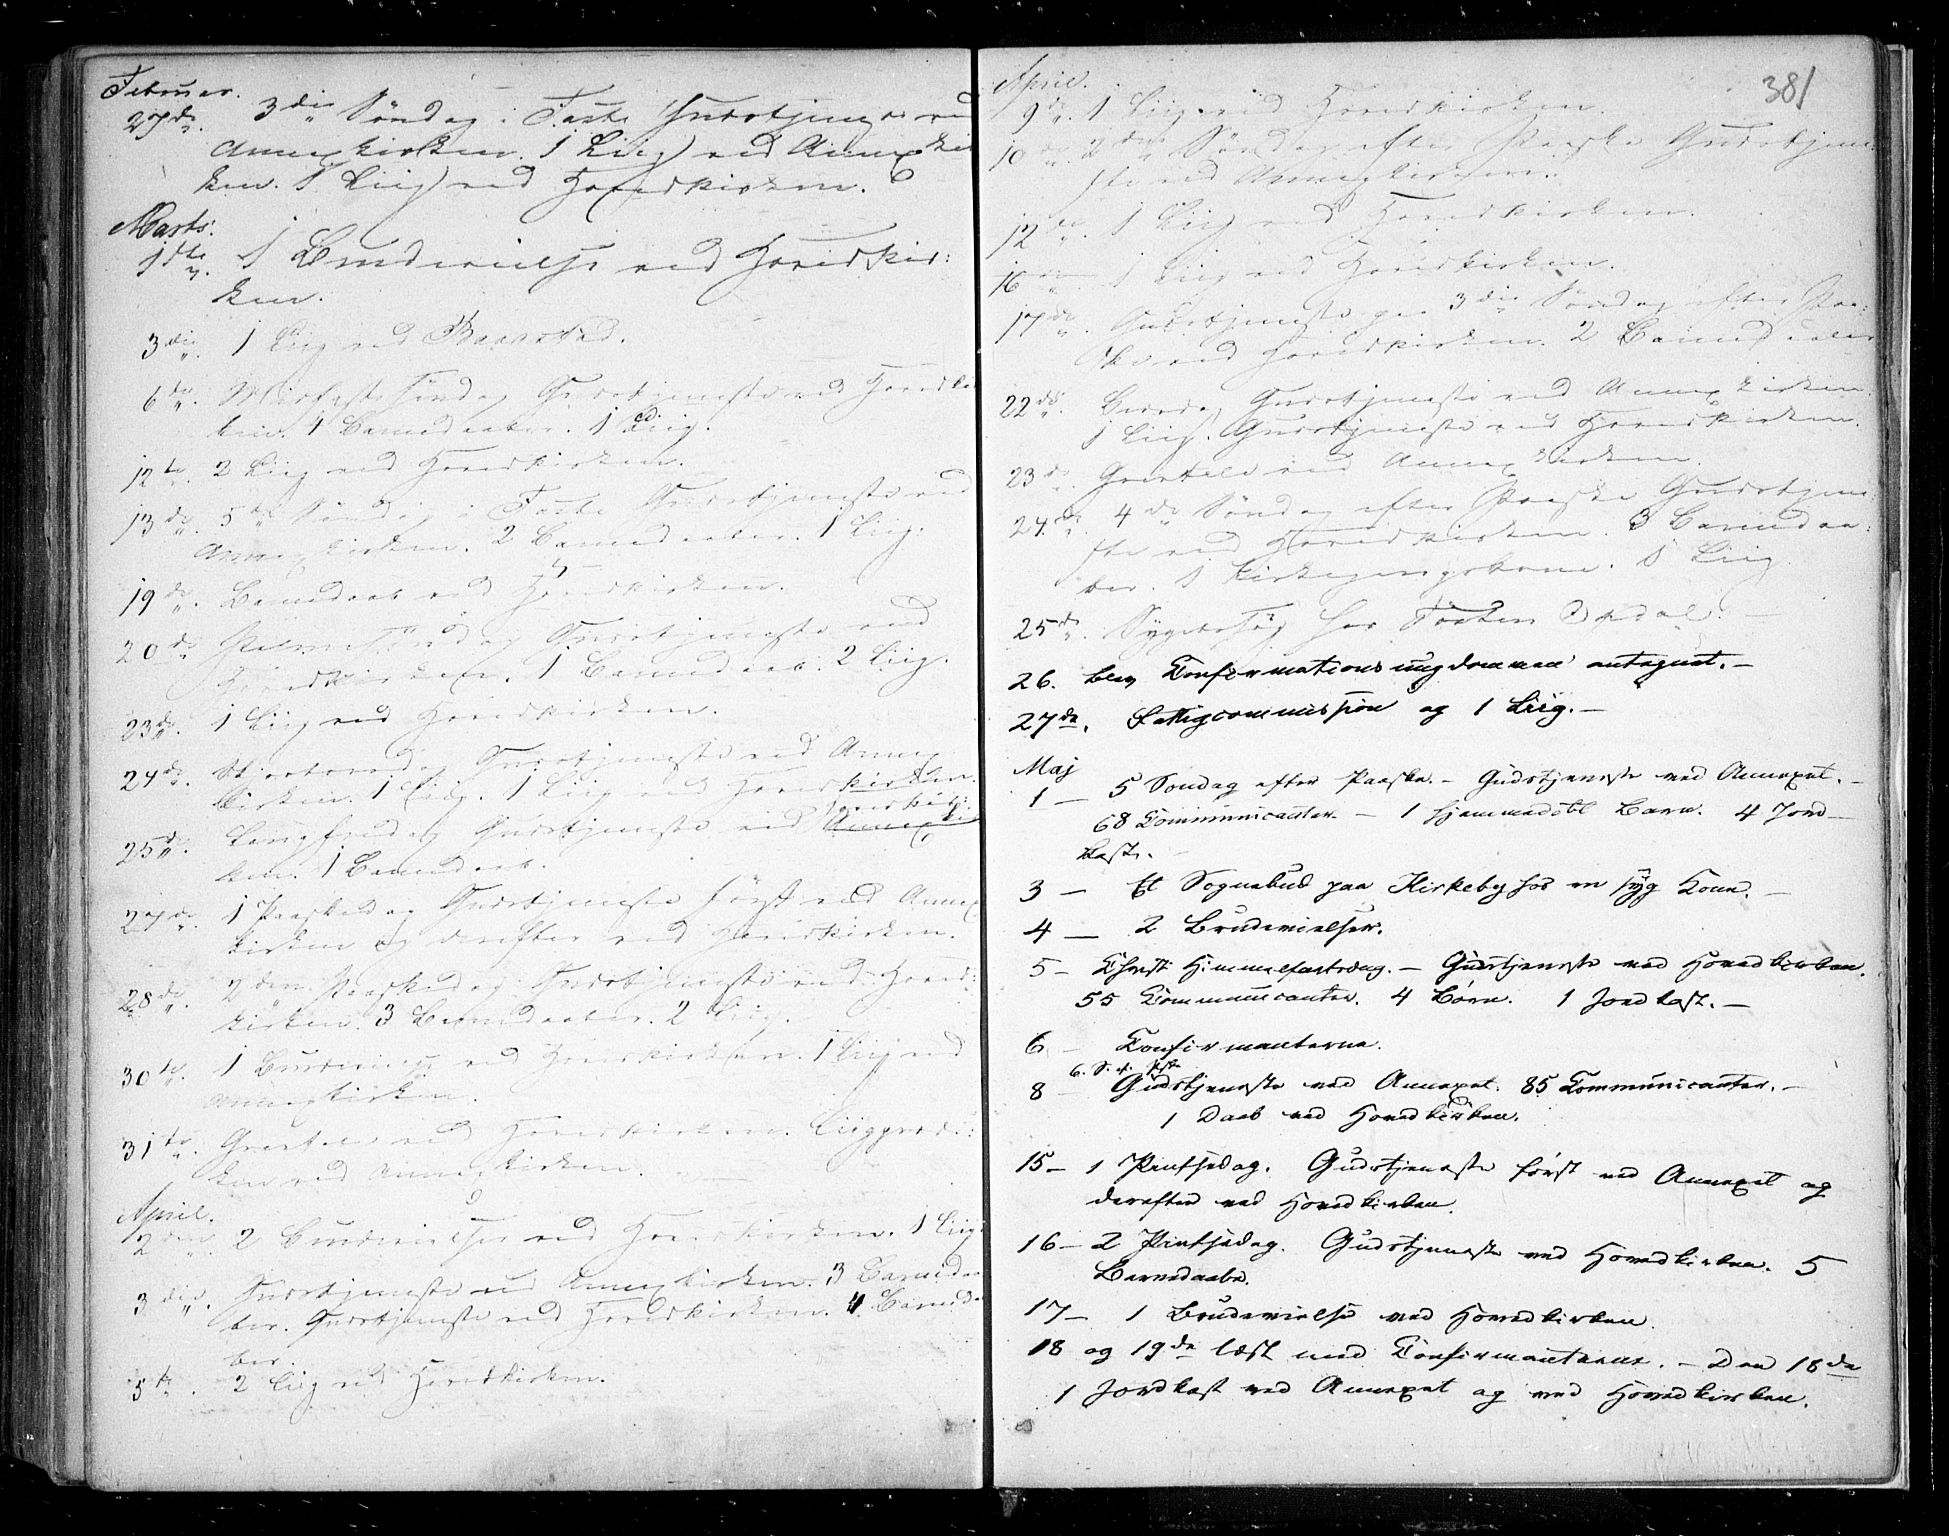 Februar.
27de. 3die Søndag i Faste Gudstjeneste ved
Annexkirken. 1 Liig ved Annexkir
ken. 1 Liig ved Hovedkirken.
Marts:
1ste. 1 Brudevielse ved Hovedkir:
ken.
3die. 1 Liig ved
6te. Midfaste Søndag Gudstjeneste ved Hovedkir
ken. 4 Barnedaaber. 1 Liig.
12te. 2 Liig ved Hovedkirken.
13de. 5te Søndag i Faste Gudstjeneste ved
Annexkirken. 2 Barnedaaber. 1 Liig.
19de. Barnedaab ved Hovedkirken.
20de. Palmesøndag Gudstjeneste ved
Hovedkirken. 1 Barnedaab. 2 Liig.
23de. 1 Liig ved Hovedkirken.
24de. Skjertorsdag Gudstjeneste ved Annex
kirken. 1 Liig. 1 Liig ved Hovedkirken.
Hovedkir:
25de. Langfredag Gudstjeneste ved Annexkir
ken. 1 Barnedaab.
27de. 1 Paaskedag Gudstjeneste først ved Annex
kirken og derefter ved Hovedkirken.
28de. 2den Paaskedag Gudstjeneste ved Hoved:
kirken. 3 Barnedaaber. 2 Liig.
30te. 1 Brudevielse ved Hovedkirken. 1 Liig ved
Annexkirken.
31te. ved Hovedkirken. Liigprædi:
ken ved Annexkirken.
April.
2den. 2 Brudevielser ved Hovedkirken. 1 Liig
3die. Gudstjeneste ved Annexkirken. 3 Barnedaa
ber. Gudstjeneste ved Hovedkirken. 4 Barneda
ber.
5te. 2 Liig ved Hovedkirken.
April.
381
9de. 1 Liig ved Hovedkirken.
10de. 2den Søndag efter Paaske Gudstjene:
ste ved Annexkirken.
12te. 1 Liig ved Hovedkirken.
16 1 Liig ved Hovedkirken.
17de. Gudstjeneste paa 3die Søndag efter Paa:
ske ved Hovedkirken. 2 Barnedaaber
22de. Bededag Gudstjeneste ved Annexkirken.
1 Liig. Gudstjeneste ved Hovedkirken.
23de. ved Annexkirken.
24de. 4de Søndag efter Paaske Gudstjene:
ste ved Hovedkirken. 3 Barnedaa:
ber. 1 Kirkegangskone. 1 Liig
25de. Sygebesøg hos
26. blev Confirmationsungdommen antagnet. –
27de. Fattigcommission og 1 Liig. –
Maj
1 – 5 Søndag efter Paaske. – Gudstjeneste ved Annexet. –
68 Communicanter. – 1 hjemmedøbt Barn. 4 Jord–
kast. –
3 – Et Sognebud paa Kirkeby hos en syg Kone. –
4 – 2 Brudevielser.
5 – Christi Himmelfartsdag. – Gudstjeneste ved Hovedkirken.
55 Communicanter. 4 Børn. 1 Jordkast. –
6 – Confirmanterne.
6. S. e. Pske
8 – Gudstjeneste ved Annexet. 85 Communicanter. –
1 Daab ved Hovedkirken.
15 – 1 Pintsedag. Gudstjeneste først ved Annexet og
derefter ved Hovedkirken.
16 – 2 Pintsedag. Gudstjeneste ved Hovedkirken. 5
Barnedaabe.
17 – 1 Brudevielse ved Hovedkirken.
18 og 19de læst med Confirmanterne. – Den 18de
1 Jordkast ved Annexet og ved Hovedkirken.